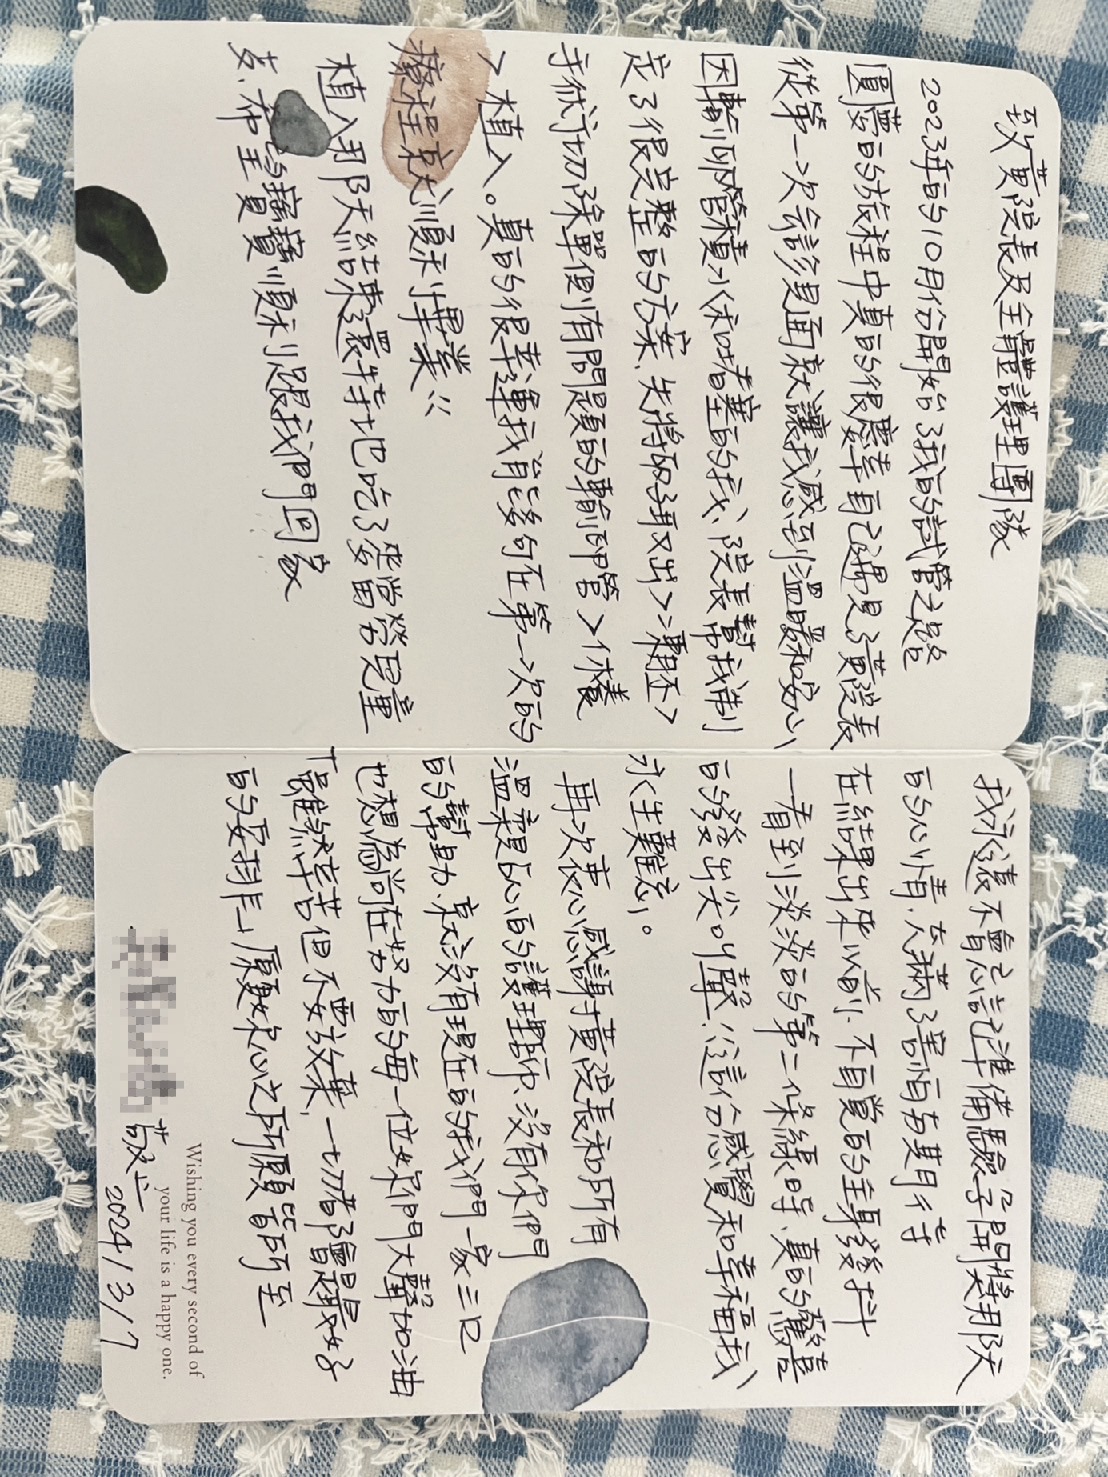 致黃院長及全體護理團隊
2023年的10月份開始了我的試管之路
圓夢的旅程中真的很慶幸自己遇見了黃院長
從第一次会診見面就讓我感到溫暖和安心、
因輸卵管積水和堵塞的我、院長幫我制
定了很完整的方案、先將卵子取出>凍胚>
手術切除單側有問題的輸卵管>休養
>植入。真的很幸運我能夠在第一次的
療程就順利畢業!!
植入那天結束還特地吃了麥當勞兒童
麥、希望寶寶順利跟我們回家
我永遠不會忘記準備驗孕開獎那天
的心情、充滿了害怕与期待
在結果出來以前、不自覚的全身發抖
一看到淡淡的第二條線時、真的驚喜
的發出尖叫聲!這份感覺和幸福我
永生難忘。
再次衷心感謝黃院長和所有
溫柔貼心的護理師、沒有你們
的幫助、就沒有現在的我們一家三口
也想為尚在努力的每一位妳們大聲加油
「雖然辛苦但不要放棄,一切都會是最好
的安排」願妳心之所願皆所至
Wishing you every second of
your life is a happy one.
敬上
2024/3/7